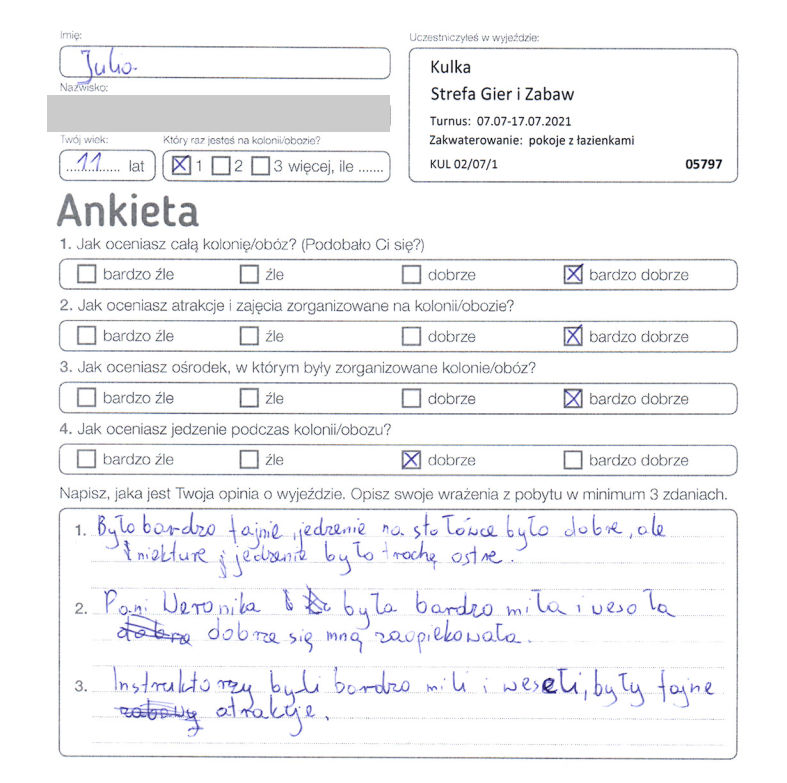 Imię:
Julia
Nazwisko:
Twój wiek:
Który raz jesteś na kolonii/obozie?
....11...... lat
1 2 3 więcej, ile .......
Uczestniczyłeś w wyjeździe:
Kulka
Strefa Gier i Zabaw
Turnus: 07.07-17.07.2021
Zakwaterowanie: pokoje z łazienkami
KUL 02/07/1 05797
Ankieta
1. Jak oceniasz całą kolonię/obóz? (Podobało Ci się?)
bardzo źle źle dobrze bardzo dobrze
2. Jak oceniasz atrakcje i zajęcia zorganizowane na kolonii/obozie?
bardzo źle źle dobrze bardzo dobrze
3. Jak oceniasz ośrodek, w którym były zorganizowane kolonie/obóz?
bardzo źle źle dobrze bardzo dobrze
4. Jak oceniasz jedzenie podczas kolonii/obozu?
bardzo źle źle dobrze bardzo dobrze
Napisz, jaka jest Twoja opinia o wyjeździe. Opisz swoje wrażenia z pobytu w minimum 3 zdaniach.
1. Było bardzo fajnie, jedzenie na stołówce było dobre, ale
niekture jedzenie było trochę ostre.
2. Pani Weronika była bardzo miła i wesoła
dobrze się mną zaopiekowała.
3. Instruktorzy byli bardzo mili i weseli, były fajne
atrakcje.